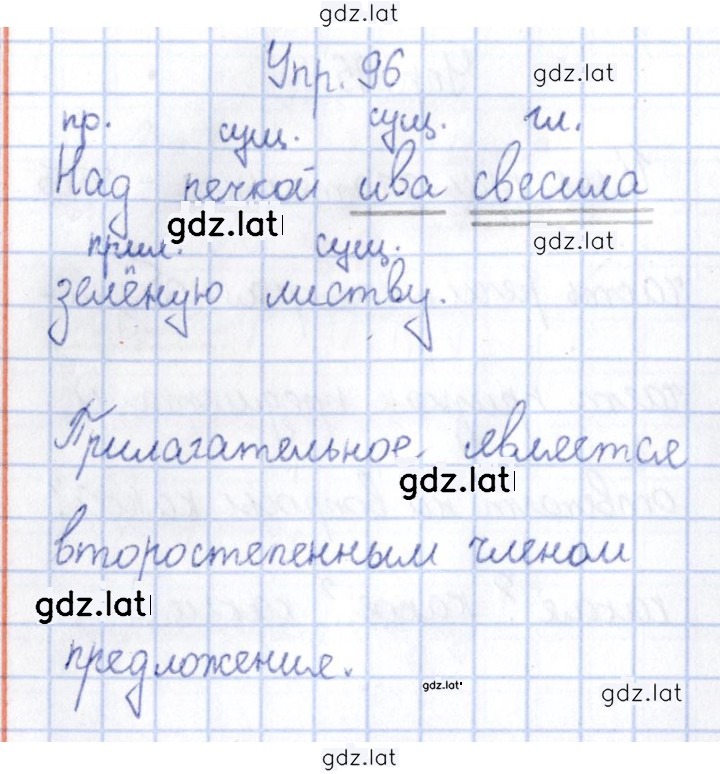 gdz.lat
Упр. 96
gdz.lat
пр. сущ. сущ. гл.
Над печкой ива свесила
gdz.lat
gdz.lat
прил. сущ.
зелёную листву.
Прилагательное является
gdz.lat
второстепенным членом
gdz.lat
предложения.
gdz.lat
gdz.lat
gdz.lat